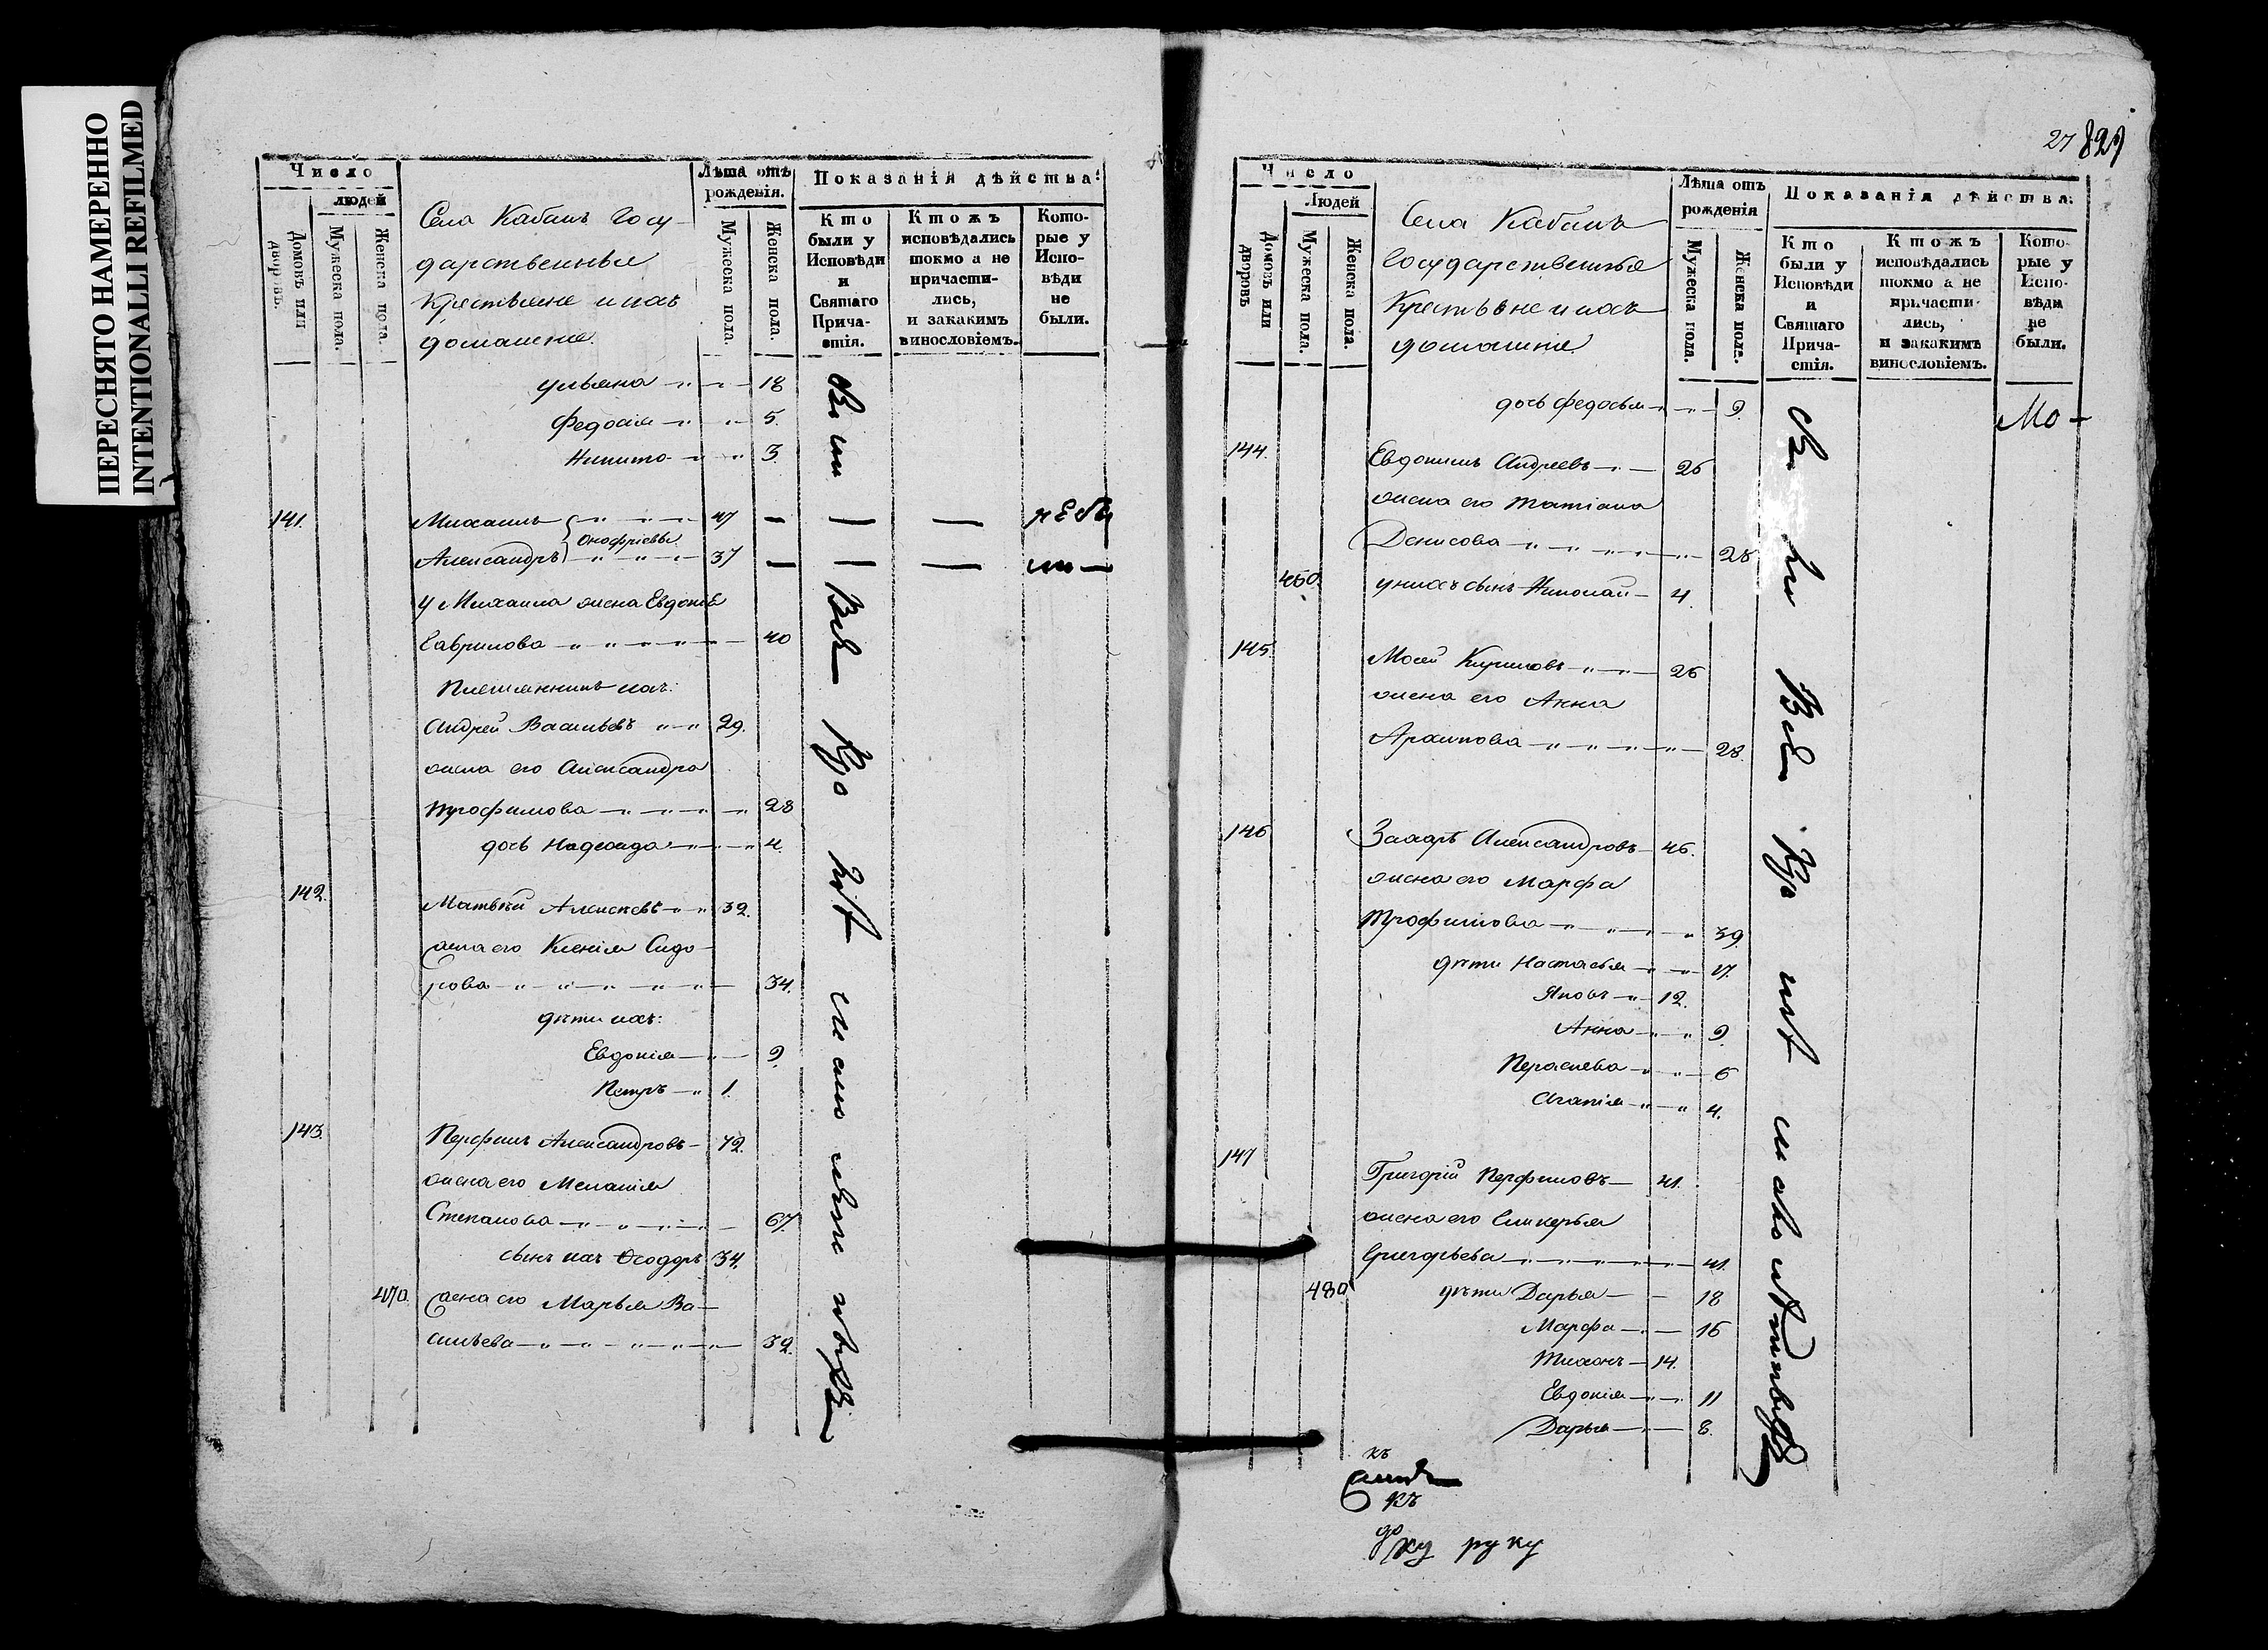 ПЕРЕСНЯТО НАМЕРЕННО
INTENTIONALLI REFILMED
Число
людей
Домовъ или дворовъ.
Мужеска пола.
Женска пола.
Села Кабанъ Госу-
дарственныя
Крестьяне и ихъ
домашние.
Лѣта отъ рожденія.
Мужеска пола.
Женска пола.
Показанія дѣйства:
Кто были у Исповѣди и Святаго Причастія.
Ктожъ исповѣдались токмо а не причастились, и закакимъ винословіемъ.
Которые у Исповѣди не были.
ульяна 18
Федосія 5.
3.
141. Михаилъ 47
Онофріевы
Александръ 37
у Михаила жена Евдокія
Гаврилова 40
Племянникъ ихъ:
Андрей Васильевъ 29.
жена его Александра
Трофимова 28
дочь Надежда 4.
142. Матвѣй Алексѣевъ 32.
жена его Ксенія Сидо-
рова 34.
дѣти ихъ:
Евдокія 9.
Петръ 1.
143. Перфилъ Александровъ 72.
жена его Меланія
Степанова 67.
сынъ ихъ Ѳеодоръ 34.
470. жена его Марья Ва-
сильева 32.
27 829
Число
Людей
Домовъ или дворовъ
Мужеска пола.
Женска пола.
Села Кабанъ
Государственныя
Крестьяне и ихъ
домашніе.
Лѣта отъ рожденія
Мужеска пола.
Женска пола.
Показанія дѣйства.
Кто были у Исповѣди и Святаго Причастія.
Ктожъ исповѣдались токмо а не причастились, и закакимъ винословіемъ.
Которые у Исповѣди не были.
дочь Федосья 9.
144. Евдокимъ Андреевъ 26
жена его Татіана
Денисова 28
460. у нихъ сынъ Николай 4.
145. Мосей Кириловъ 26
жена его Анна
Архипова 28.
146 Захаръ Александровъ 46.
жена его Марфа
Трофимова 39.
дѣти Настасья 17.
Яковъ 12.
Анна 9.
6
Агапія 4.
147 Григорій Перфиловъ 41.
жена его Гликерья
Григорьева 41.
480 дѣти Дарья 18
Марфа 16
Тихонъ 14.
Евдокія 11
Дарья 8.
къ
руку